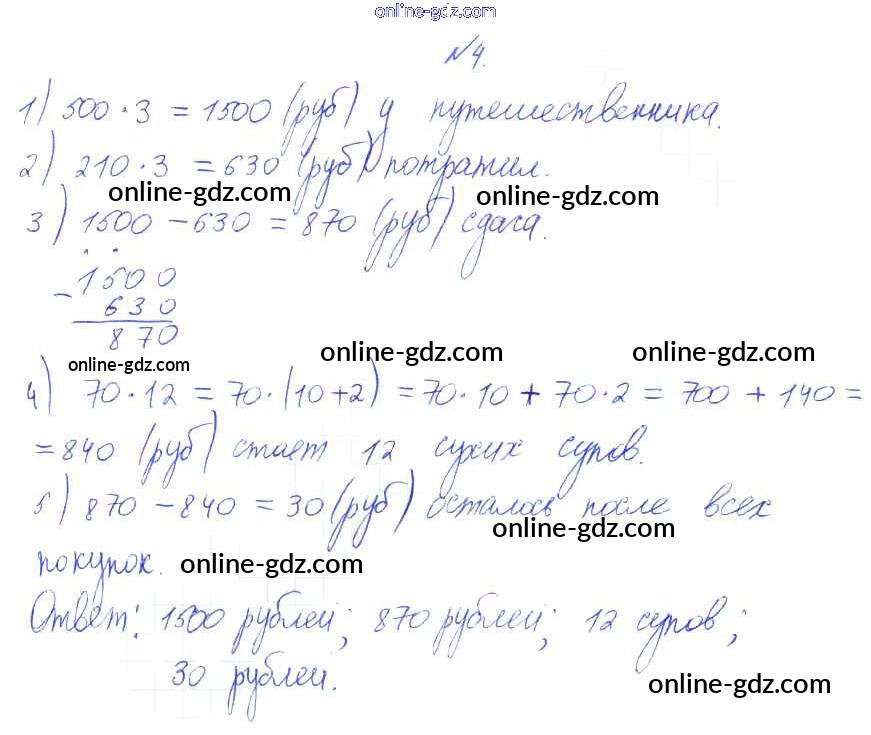 online-gdz.com
№4.
1) 500·3 = 1500 (руб) у путешественника.
2) 210·3 = 630 (руб) потратил.
online-gdz.com online-gdz.com
3) 1500 − 630 = 870 (руб) сдача.
− 1500
630
870
online-gdz.com online-gdz.com online-gdz.com
4) 70·12 = 70·(10+2) = 70·10 + 70·2 = 700 + 140 =
= 840 (руб) стоет 12 сухих супов.
5) 870 − 840 = 30 (руб) осталось после всех
online-gdz.com
покупок. online-gdz.com
Ответ: 1500 рублей; 870 рублей; 12 супов;
30 рублей.
online-gdz.com